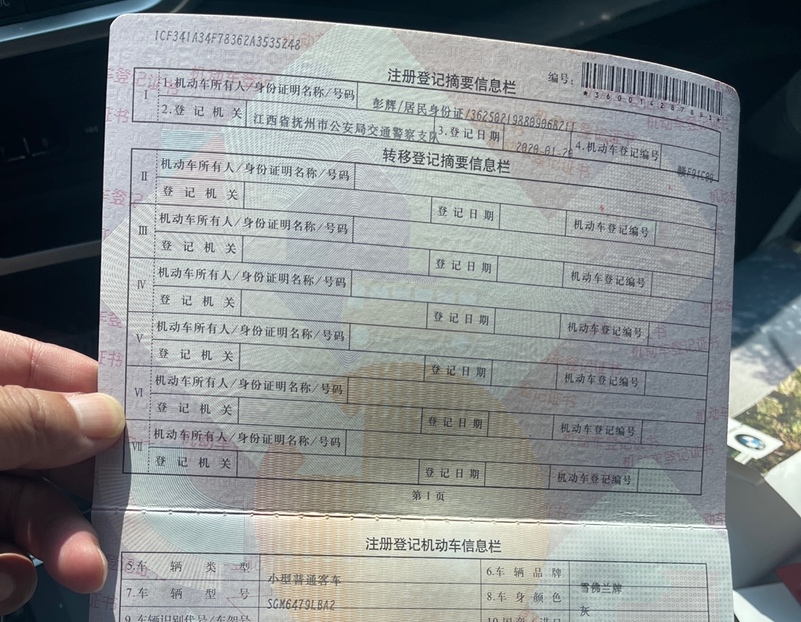 1CF341A34F78362A3535248
注册登记摘要信息栏
编号:
I 1.机动车所有人/身份证明名称/号码 彭辉/居民身份证/
2.登记机关 江西省抚州市公安局交通警察支队 3.登记日期 4.机动车登记编号
转移登记摘要信息栏
II 机动车所有人/身份证明名称/号码
登记机关 登记日期 机动车登记编号
III 机动车所有人/身份证明名称/号码
登记机关 登记日期 机动车登记编号
IV 机动车所有人/身份证明名称/号码
登记机关 登记日期 机动车登记编号
V 机动车所有人/身份证明名称/号码
登记机关 登记日期 机动车登记编号
VI 机动车所有人/身份证明名称/号码
登记机关 登记日期 机动车登记编号
VII 机动车所有人/身份证明名称/号码
登记机关 登记日期 机动车登记编号
第1页
注册登记机动车信息栏
5.车辆类型 小型普通客车 6.车辆品牌 雪佛兰牌
7.车辆型号 SGM6479LBA2 8.车身颜色 灰
9.车辆识别代号/车架号